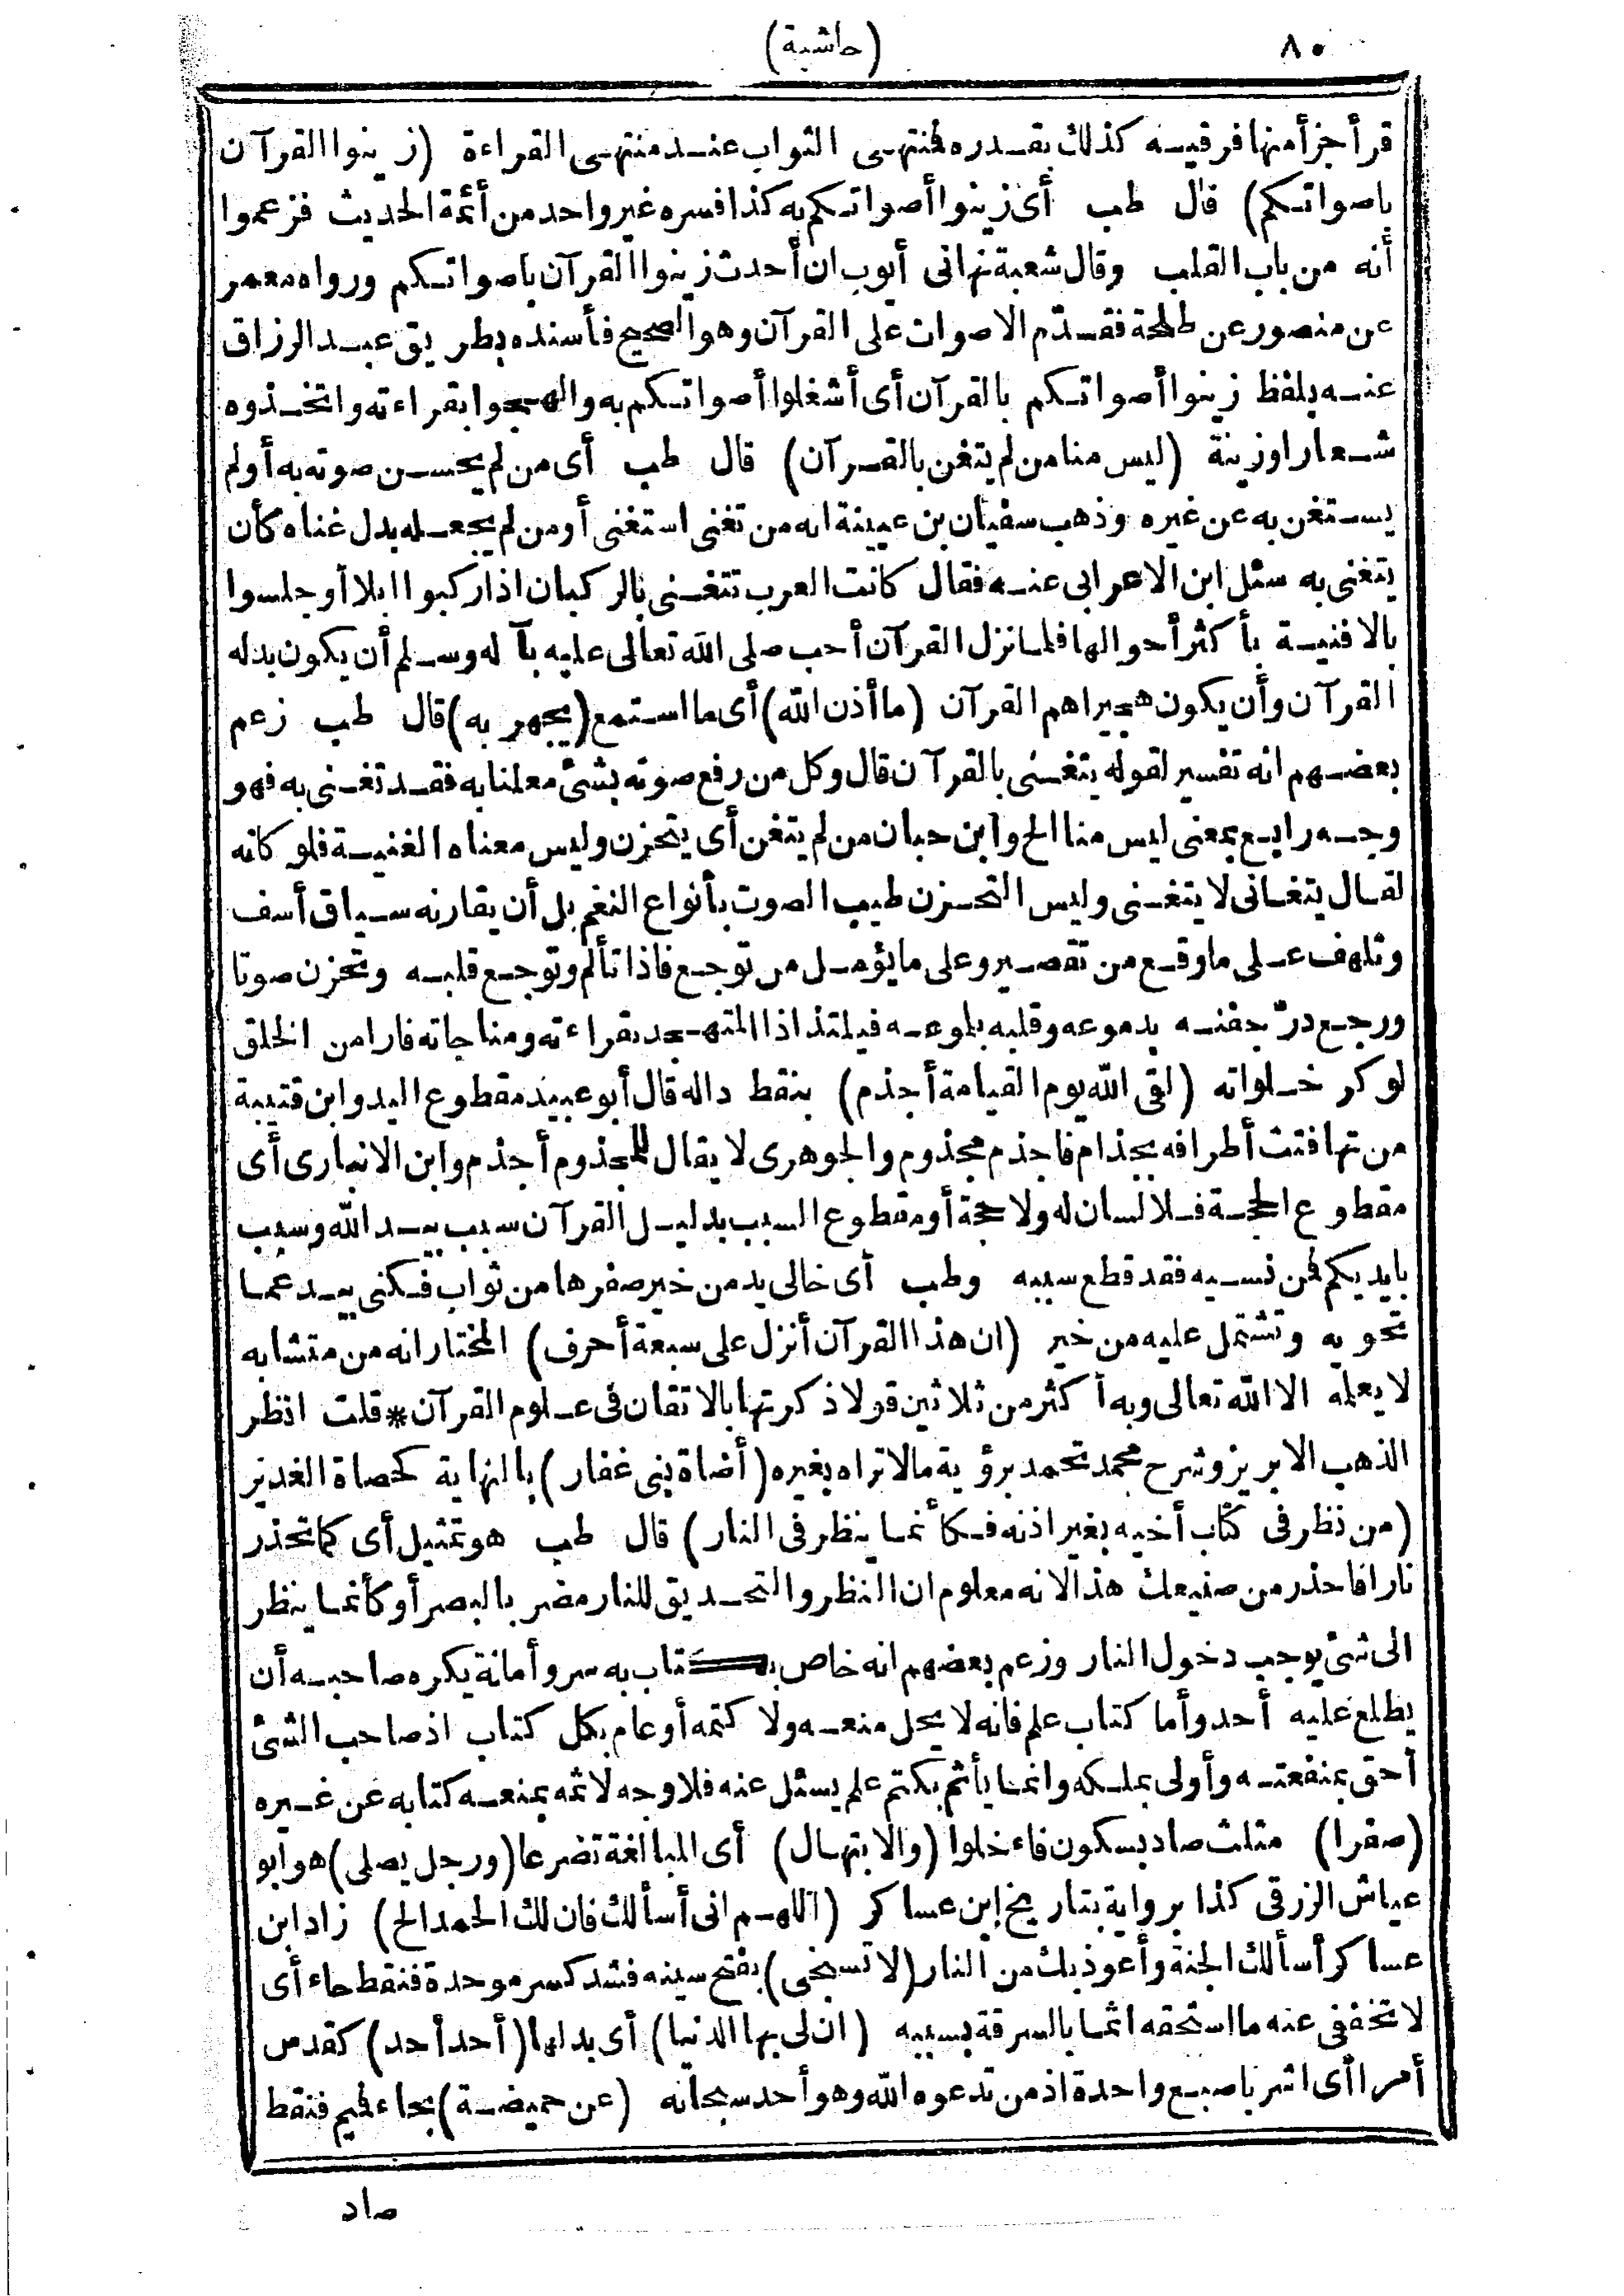 ٨٠
(حاشية)
قرأ جزأ منها فرقيه كذلك بقدره فمنتهى الثواب عند منتهى القراءة (زينوا القرآن
باصواتكم) قال طب أى زينوا أصواتكم به كذا فسره غير واحد من أئمة الحديث فزعموا
أنه من باب القلب وقال شعبة نهانى أيوب ان أحدث زينوا القرآن باصواتكم ورواه معمر
عن منصور عن طلحة فقدّم الاصوات على القرآن وهو الصحيح فأسنده بطريق عبد الرزاق
عنه بلفظ زينوا أصواتكم بالقرآن أى أشغلوا أصواتكم به والهجوا بقراءته واتخذوه
شعارا وزينة (ليس منا من لم يتغن بالقرآن) قال طب أى من لم يحسن صوته به أو لم
يستغن به عن غيره وذهب سفيان بن عيينة انه من تغنى استغنى أو من لم يجعله بدل غناه كأن
يتغنى به سئل ابن الاعرابى عنه فقال كانت العرب تتغنى بالركبان اذا ركبوا ابلا أو جلسوا
بالافنية بأكثر أحوالها فلما نزل القرآن أحب صلى الله تعالى عليه بآله وسلم أن يكون بدله
القرآن وأن يكون هجيراهم القرآن (ما أذن الله) أى ما استمع (يجهر به) قال طب زعم
بعضهم انه تفسير لقوله يتغنى بالقرآن قال وكل من رفع صوته بشئ معلنا به فقد تغنى به فهو
وجه رابع بمعنى ليس منا الخ وابن حبان من لم يتغن أى يتحزن وليس معناه الغنية فلو كانه
لقال يتغانى لا يتغنى وليس التحزن طيب الصوت بأنواع النغم بل أن يقارنه سياق أسف
وتلهف على ما وقع من تقصير وعلى ما يؤمل من توجع فاذا تألم وتوجع قلبه وتحزن صوتا
ورجع درّ جفنه بدموعه وقلبه بلوعه فيلتذ اذا المتهجد بقراءته ومناجاته فارا من الخلق
لوكر خلواته (لقى الله يوم القيامة أجذم) بنقط داله قال أبو عبيد مقطوع اليد وابن قتيبة
من تهافتت أطرافه بجذام فاجذم مجذوم والجوهرى لا يقال للمجذوم أجذم وابن الانبارى أى
مقطوع الحجة فلا لسان له ولا حجة أو مقطوع السبب بدليل القرآن سبب بيد الله وسبب
بايديكم فمن نسيه فقد قطع سببه وطب أى خالى يد من خير صفرها من ثواب فكنى بيد عما
تحويه وتشتمل عليه من خير (ان هذا القرآن أنزل على سبعة أحرف) المختار انه من متشابه
لا يعلمه الا الله تعالى وبه أكثر من ثلاثين قولا ذكرتها بالاتقان فى علوم القرآن * قلت انظر
الذهب الابريز وشرح محمد تحمد برؤية ما لا تراه بغيره (أضاة بنى غفار) بالنهاية كحصاة الغدير
(من نظر فى كتاب أخيه بغير اذنه فكأنما ينظر فى النار) قال طب هو تمثيل أى كما تحذر
نارا فاحذر من صنيعك هذا لانه معلوم ان النظر والتحديق للنار مضر بالبصر أو كأنما ينظر
الى شئ يوجب دخول النار وزعم بعضهم انه خاص بكتاب به سر وأمانة يكره صاحبه أن
يطلع عليه أحد وأما كتاب علم فانه لا يحل منعه ولا كتمه أو عام بكل كتاب اذ صاحب الشئ
أحق بمنفعته وأولى بملكه وانما يأثم بكتم علم يسئل عنه فلا وجه لاثمه بمنعه كتابه عن غيره
(صفرا) مثلث صاد بسكون فاء خلوا (والابتهال) أى المبالغة تضرعا (ورجل يصلى) هو أبو
عياش الزرقى كذا برواية بتاريخ ابن عساكر (اللهم انى أسألك فان لك الحمد الخ) زاد ابن
عساكر أسألك الجنة وأعوذ بك من النار (لا تسبخى) بفتح سينه فشد كسر موحدة فنقط حاء أى
لا تخففى عنه ما استحقه اثما بالسرقة بسببه (ان لى بها الدنيا) أى بدلها (أحد أحد) كقدس
أمرا أى اشر باصبع واحدة اذ من تدعوه الله وهو أحد سبحانه (عن حميضة) بحاء فميم فنقط
صاد